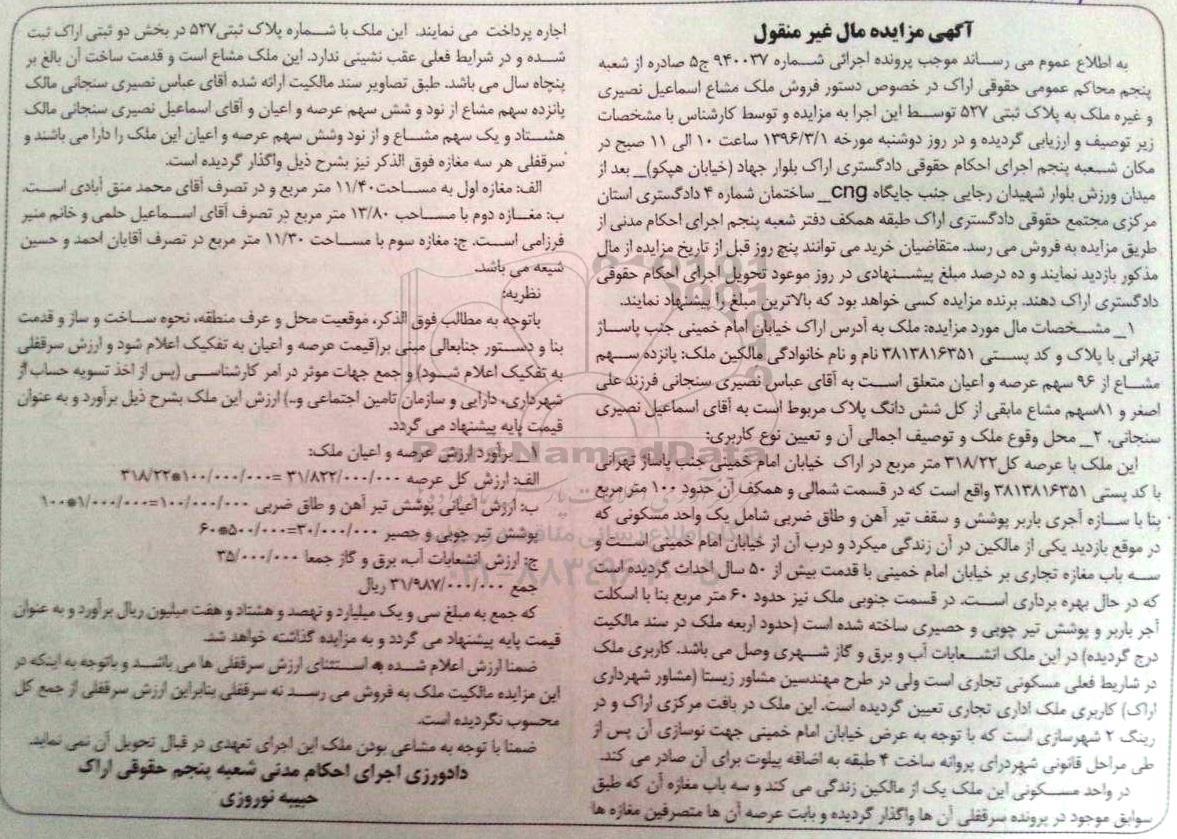 آگهی مزایده مال غیر منقول
به اطلاع عموم می رساند موجب پرونده اجرائی شماره ۹۴۰۰۳۷ ج۵ صادره از شعبه
پنجم محاکم عمومی حقوقی اراک در خصوص دستور فروش ملک مشاع اسماعیل نصیری
و غیره ملک به پلاک ثبتی ۵۲۷ توسط این اجرا به مزایده و توسط کارشناس با مشخصات
زیر توصیف و ارزیابی گردیده و در روز دوشنبه مورخه ۱۳۹۶/۳/۱ ساعت ۱۰ الی ۱۱ صبح در
مکان شعبه پنجم اجرای احکام حقوقی دادگستری اراک بلوار جهاد (خیابان هپکو)_ بعد از
میدان ورزش بلوار شهیدان رجایی جنب جایگاه cng_ ساختمان شماره ۴ دادگستری استان
مرکزی مجتمع حقوقی دادگستری اراک طبقه همکف دفتر شعبه پنجم اجرای احکام مدنی از
طریق مزایده به فروش می رسد. متقاضیان خرید می توانند پنج روز قبل از تاریخ مزایده از مال
مذکور بازدید نمایند و ده درصد مبلغ پیشنهادی در روز موعود تحویل اجرای احکام حقوقی
دادگستری اراک دهند. برنده مزایده کسی خواهد بود که بالاترین مبلغ را پیشنهاد نمایند.
۱_ مشخصات مال مورد مزایده: ملک به آدرس اراک خیابان امام خمینی جنب پاساژ
تهرانی با پلاک و کد پستی ۳۸۱۳۸۱۶۳۵۱ نام و نام خانوادگی مالکین ملک: پانزده سهم
مشاع از ۹۶ سهم عرصه و اعیان متعلق است به آقای عباس نصیری سنجانی فرزند علی
اصغر و ۸۱سهم مشاع مابقی از کل شش دانگ پلاک مربوط است به آقای اسماعیل نصیری
سنجانی. ۲_ محل وقوع ملک و توصیف اجمالی آن و تعیین نوع کاربری:
این ملک با عرصه کل۳۱۸/۲۲ متر مربع در اراک خیابان امام خمینی جنب پاساژ تهرانی
با کد پستی ۳۸۱۳۸۱۶۳۵۱ واقع است که در قسمت شمالی و همکف آن حدود ۱۰۰ متر مربع
بنا با سازه آجری باربر پوشش و سقف تیر آهن و طاق ضربی شامل یک واحد مسکونی که
در موقع بازدید یکی از مالکین در آن زندگی میکرد و درب آن از خیابان امام خمینی است و
سه باب مغازه تجاری بر خیابان امام خمینی با قدمت بیش از ۵۰ سال احداث گردیده است
که در حال بهره برداری است. در قسمت جنوبی ملک نیز حدود ۶۰ متر مربع بنا با اسکلت
آجر باربر و پوشش تیر چوبی و حصیری ساخته شده است (حدود اربعه ملک در سند مالکیت
درج گردیده) در این ملک انشعابات آب و برق و گاز شهری وصل می باشد. کاربری ملک
در شاریط فعلی مسکونی تجاری است ولی در طرح مهندسین مشاور زیستا (مشاور شهرداری
اراک) کاربری ملک اداری تجاری تعیین گردیده است. این ملک در بافت مرکزی اراک و در
رینگ ۲ شهرسازی است که با توجه به عرض خیابان امام خمینی جهت نوسازی آن پس از
طی مراحل قانونی شهردرای پروانه ساخت ۴ طبقه به اضافه پیلوت برای آن صادر می کند.
در واحد مسکونی این ملک یک از مالکین زندگی می کند و سه باب مغازه آن که طبق
سوابق موجود در پرونده سرقفلی آن ها واگذار گردیده و بابت عرصه آن ها متصرفین مغازه ها
اجاره پرداخت می نمایند. این ملک با شماره پلاک ثبتی۵۲۷ در بخش دو ثبتی اراک ثبت
شده و در شرایط فعلی عقب نشینی ندارد. این ملک مشاع است و قدمت ساخت آن بالغ بر
پنجاه سال می باشد. طبق تصاویر سند مالکیت ارائه شده آقای عباس نصیری سنجانی مالک
پانزده سهم مشاع از نود و شش سهم عرصه و اعیان و آقای اسماعیل نصیری سنجانی مالک
هشتاد و یک سهم مشاع و از نود وشش سهم عرصه و اعیان این ملک را دارا می باشند و
سرقفلی هر سه مغازه فوق الذکر نیز بشرح ذیل واگذار گردیده است.
الف: مغازه اول به مساحت۱۱/۴۰ متر مربع و در تصرف آقای محمد منق آبادی است.
ب: مغازه دوم با مساحب ۱۳/۸۰ متر مربع در تصرف آقای اسماعیل حلمی و خانم منیر
فرزامی است. ج: مغازه سوم با مساحت ۱۱/۳۰ متر مربع در تصرف آقایان احمد و حسین
شیعه می باشد.
نظریه:
باتوجه به مطالب فوق الذکر، موقعیت محل و عرف منطقه، نحوه ساخت و ساز و قدمت
بنا و دستور جنابعالی مبنی بر(قیمت عرصه و اعیان به تفکیک اعلام شود و ارزش سرقفلی
به تفکیک اعلام شود) و جمع جهات موثر در امر کارشناسی (پس از اخذ تسویه حساب از
شهرداری، دارایی و سازمان تامین اجتماعی و..) ارزش این ملک بشرح ذیل برآورد و به عنوان
قیمت پایه پیشنهاد می گردد.
۱_ برآورد ارزش عرصه و اعیان ملک:
الف: ارزش کل عرصه ۳۱/۸۲۲/۰۰۰/۰۰۰ =۱۰۰/۰۰۰/۰۰۰*۳۱۸/۲۲
ب: ارزش اعیانی پوشش تیر آهن و طاق ضربی ۱۰۰/۰۰۰/۰۰۰=۱/۰۰۰/۰۰۰*۱۰۰
پوشش تیر چوبی و حصیر ۳۰/۰۰۰/۰۰۰=۵۰۰/۰۰۰*۶۰
ج: ارزش انشعابات آب، برق و گاز جمعا ۳۵/۰۰۰/۰۰۰
جمع ۳۱/۹۸۷/۰۰۰/۰۰۰ ریال
که جمع به مبلغ سی و یک میلیارد و نهصد و هشتاد و هفت میلیون ریال برآورد و به عنوان
قیمت پایه پیشنهاد می گردد و به مزایده گذاشته خواهد شد.
ضمنا ارزش اعلام شده به استثنای ارزش سرقفلی ها می باشد و باتوجه به اینکه در
این مزایده مالکیت ملک به فروش می رسد نه سرقفلی بنابراین ارزش سرقفلی از جمع کل
محسوب نگردیده است.
ضمنا با توجه به مشاعی بودن ملک این اجرای تعهدی در قبال تحویل آن نمی نماید.
دادورزی اجرای احکام مدنی شعبه پنجم حقوقی اراک
حبیبه نوروزی
ParsNamadData